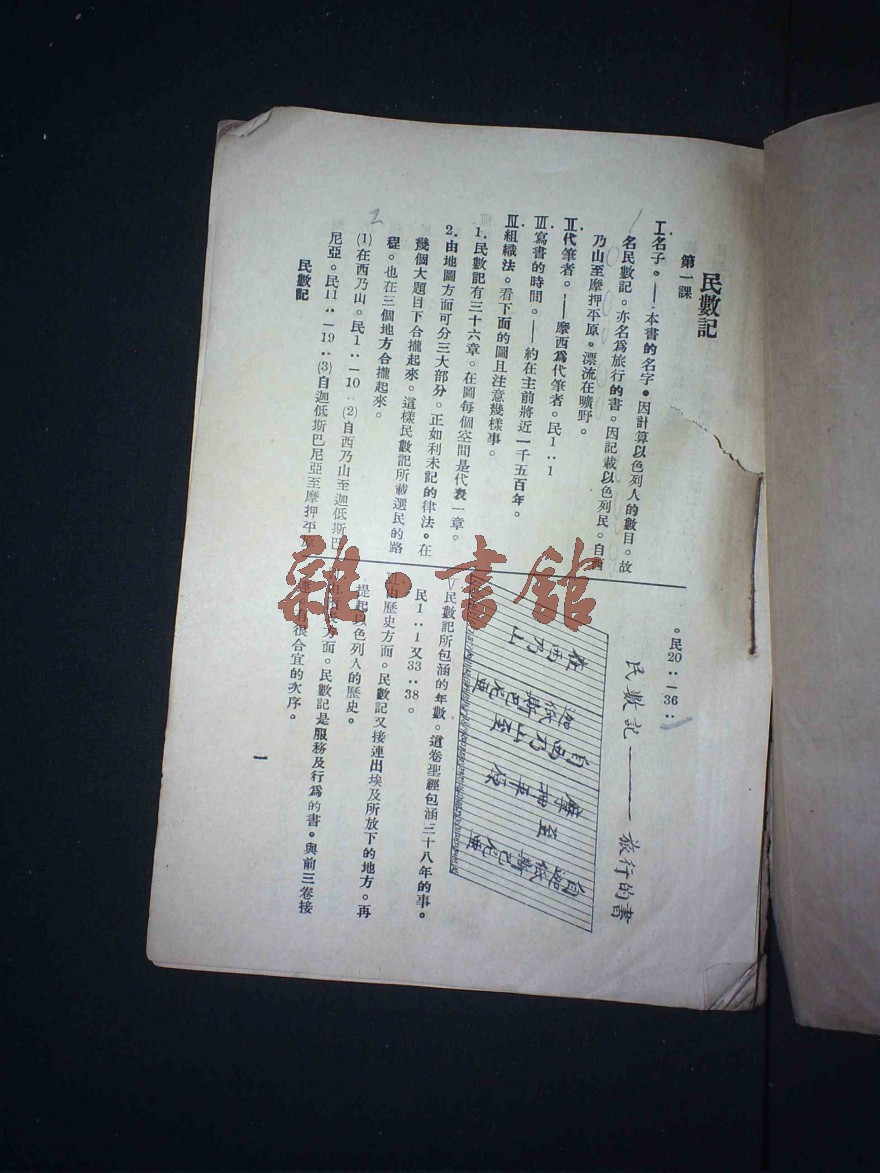 民數記
第一課
I.名子。——本書的名字。因計算以色列人的數目。故
名民數記。亦名爲旅行的書。因記載以色列民。自西
乃山至摩押平原。漂流在曠野。
II.代筆者。——摩西爲代筆者。民1:1
III.寫書的時間。——約在主前將近一千五百年。
III.組織法。看下面的圖且注意幾樣事。
1.民數記有三十六章。在圖每個空間是代表一章。
2.由地圖方面可分三大部分。正如利未記的律法。在
幾個大題目下合攏起來。這樣民數記所載選民的路
程。也在三個地方合攏起來。
2
(1)在西乃山。民1:—10.(2)自西乃山至迦低斯巴
尼亞。民11:—19:(3)自迦低斯巴尼亞至摩押平原
民數記
。民20:—36:
民數記——旅行的書
在西乃山
自西乃山至
迦低斯巴尼亞
自迦低斯巴尼亞
至
摩押平原
民數記所包涵的年數。這卷聖經包涵三十八年的事。
民1:1又33:38。
由歷史方面。民數記又接連出埃及所放下的地方。再
提起以色列人的歷史。
方面。民數記是服務及行爲的書。與前三卷接
有很合宜的次序。
一
雜·書館